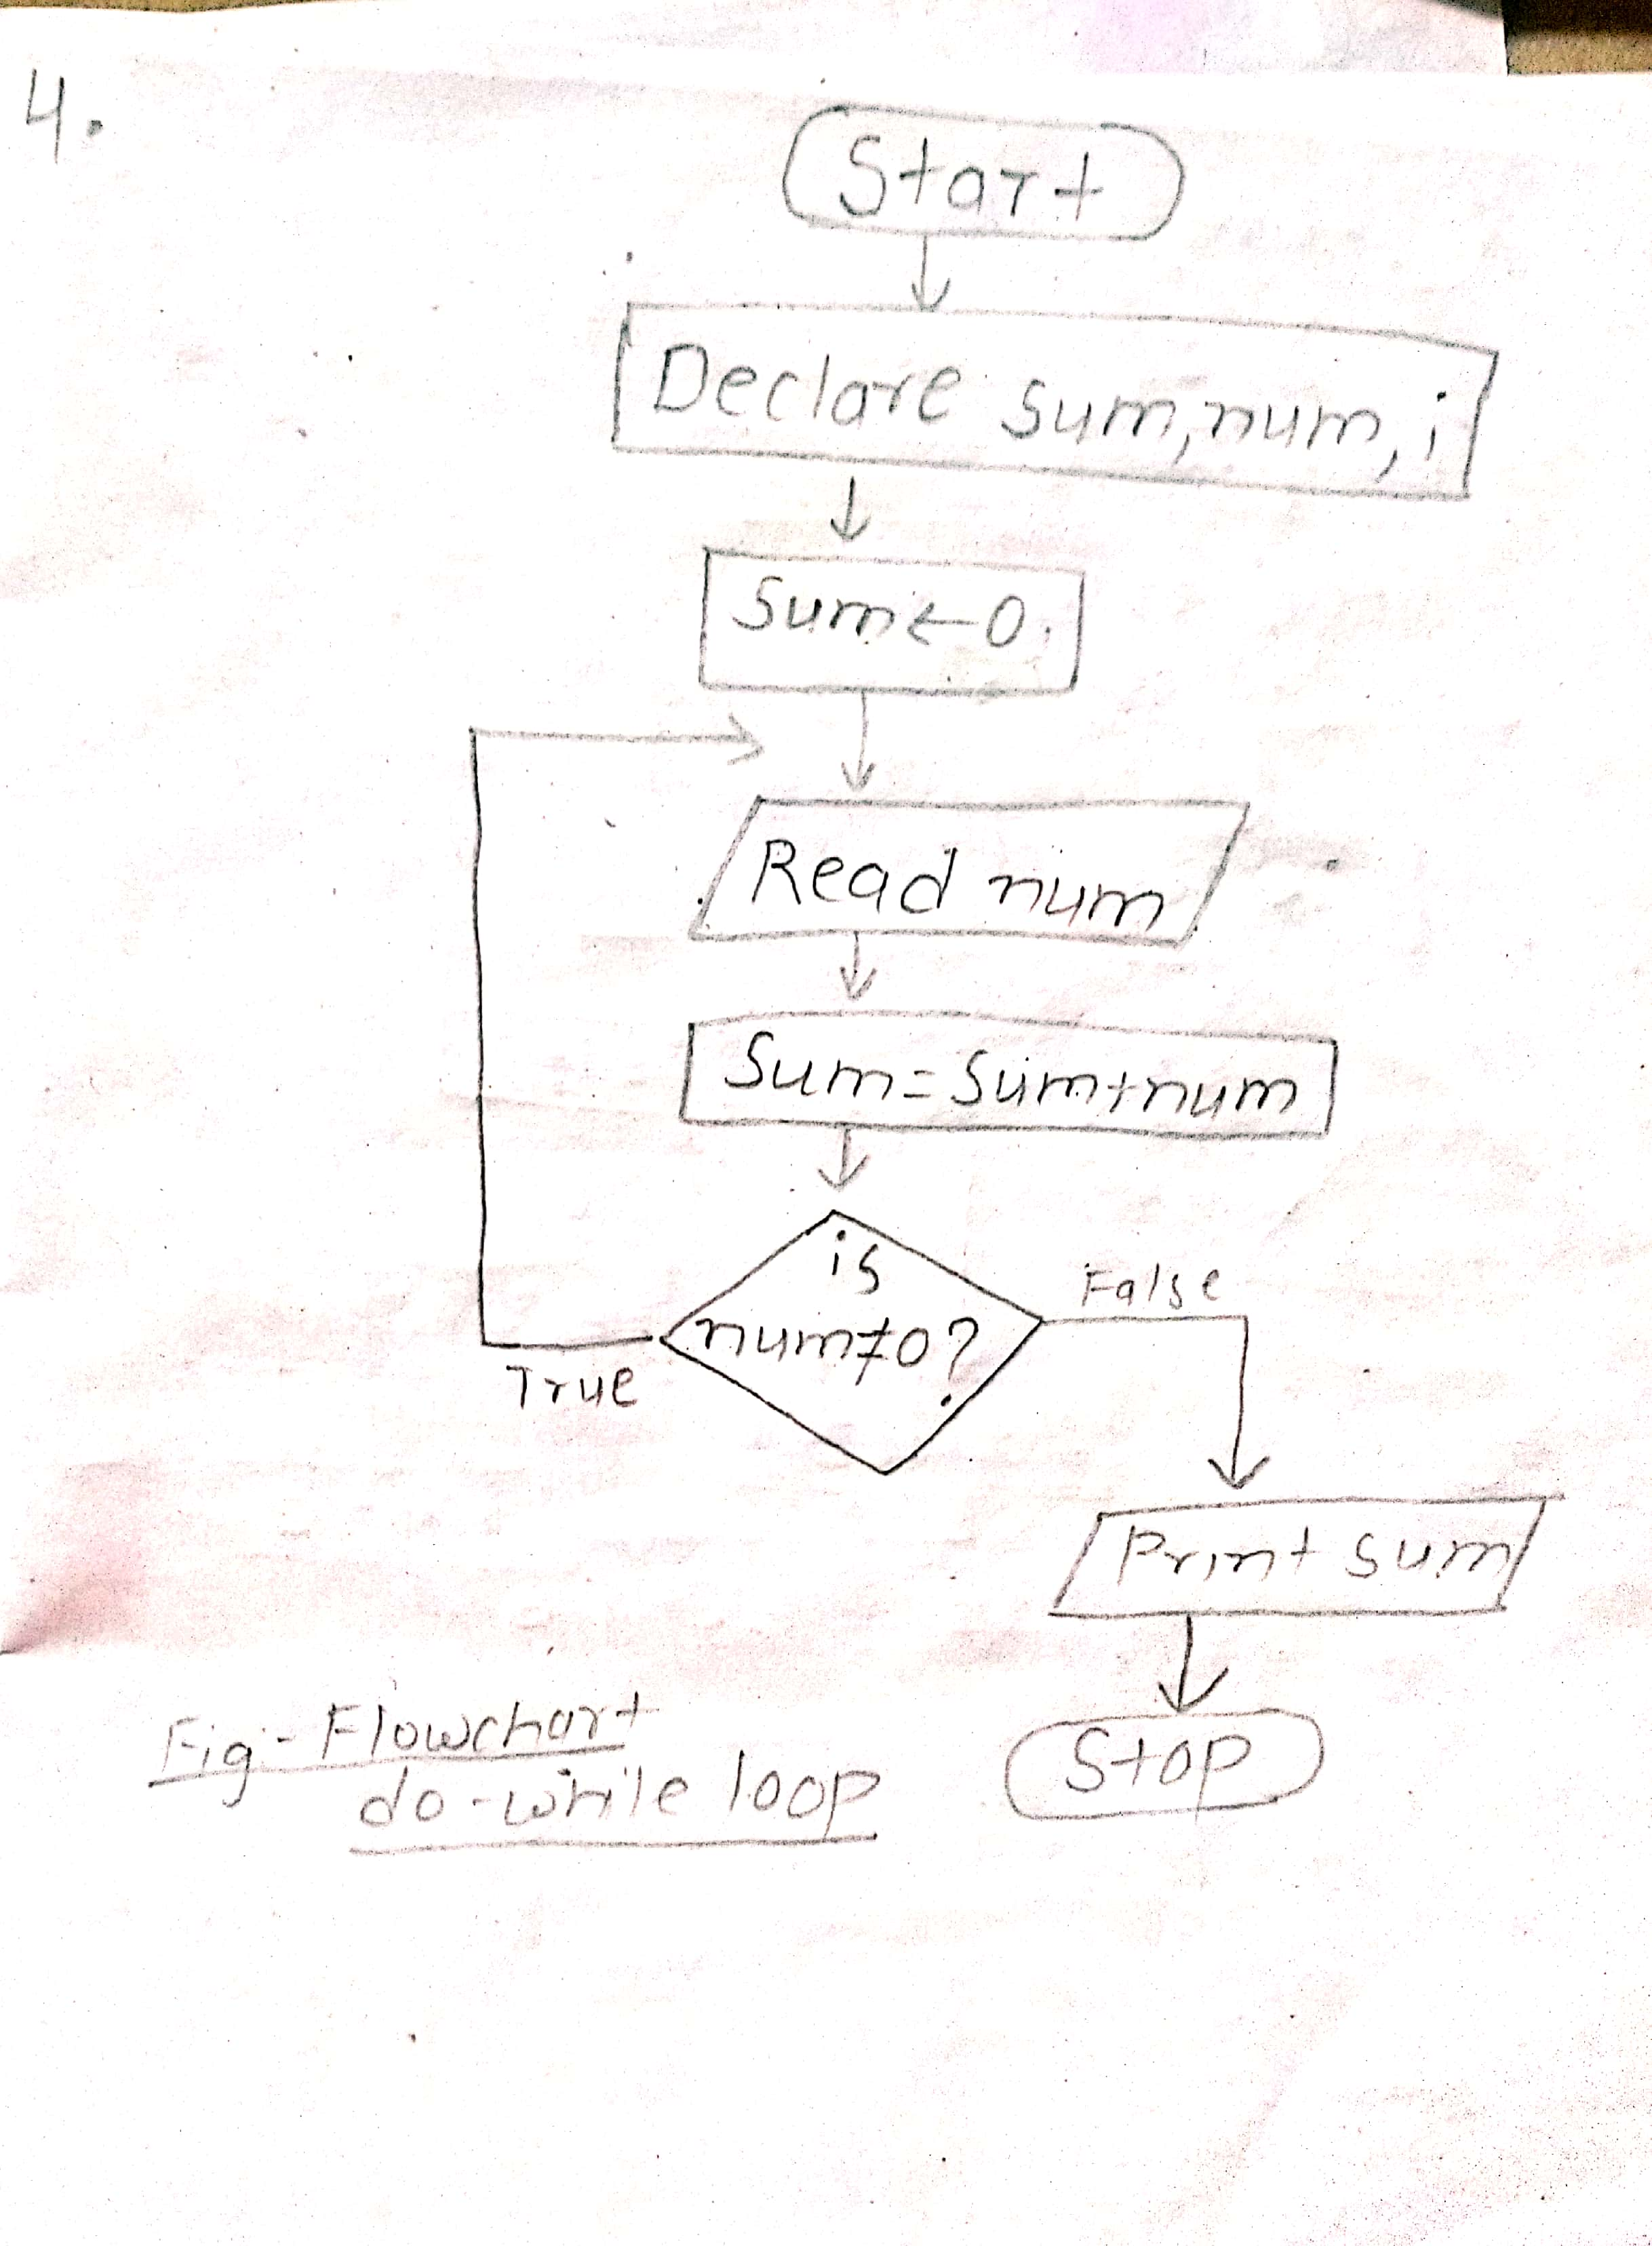 4.
Start
Declare sum,num,i
Sum←0
Read num
Sum=Sum+num
is
num≠0?
False
True
Print sum
Stop
Fig:- Flowchart
do-while loop